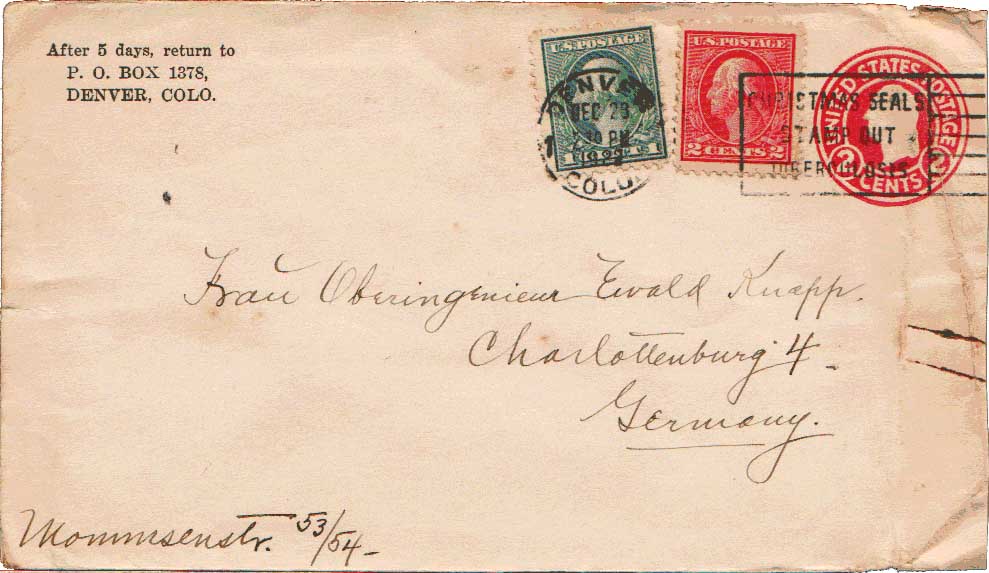 After 5 days, return to
P. O. BOX 1378,
DENVER, COLO.
U.S. POSTAGE
1 CENT 1
U.S. POSTAGE
2 CENTS 2
DENVER
DEC 23
PM
1922
COLO.
1
CHRISTMAS SEALS
STAMP OUT
TUBERCULOSIS
UNITED STATES POSTAGE
2 CENTS 2
Frau Oberingenieur Ewald Knapp.
Charlottenburg 4.
Germany.
Mommsenstr. 53/54